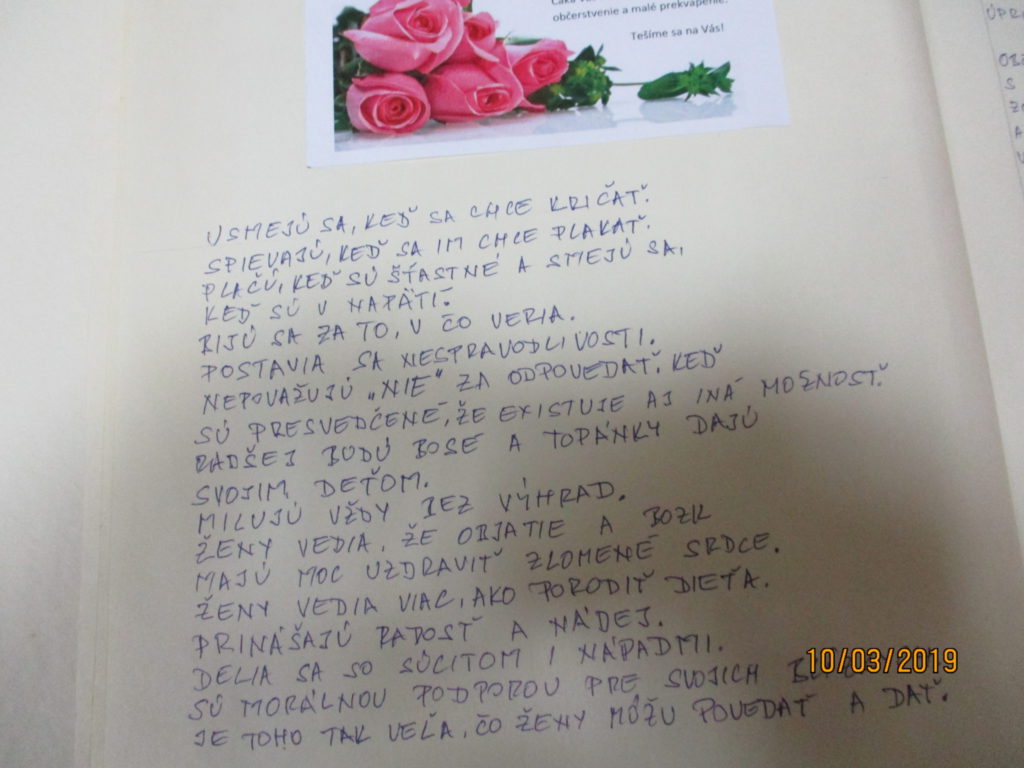 občerstvenie a malé prekvapenie.
Tešíme sa na Vás!
USMEJÚ SA, KEĎ SA CHCE KRIČAŤ.
SPIEVAJÚ, KEĎ SA IM CHCE PLAKAŤ.
PLAČÚ, KEĎ SÚ ŠŤASTNÉ A SMEJÚ SA,
KEĎ SÚ V NAPÄTÍ.
BIJÚ SA ZA TO, V ČO VERIA.
POSTAVIA SA NESPRAVODLIVOSTI.
NEPOVAŽUJÚ „NIE“ ZA ODPOVEDAŤ. KEĎ
SÚ PRESVEDČENÉ, ŽE EXISTUJE AJ INÁ MOŽNOSŤ.
RADŠEJ BUDÚ BOSÉ A TOPÁNKY DAJÚ
SVOJIM DEŤOM.
MILUJÚ VŽDY BEZ VÝHRAD.
ŽENY VEDIA, ŽE OBJATIE A BOZK
MAJÚ MOC UZDRAVIŤ ZLOMENÉ SRDCE.
ŽENY VEDIA VIAC, AKO PORODIŤ DIEŤA.
PRINÁŠAJÚ RADOSŤ A NÁDEJ.
DELIA SA SO SÚCITOM I NÁPADMI.
SÚ MORÁLNOU PODPOROU PRE SVOJICH
JE TOHO TAK VEĽA, ČO ŽENY MÔŽU POVEDAŤ A DAŤ.
10/03/2019